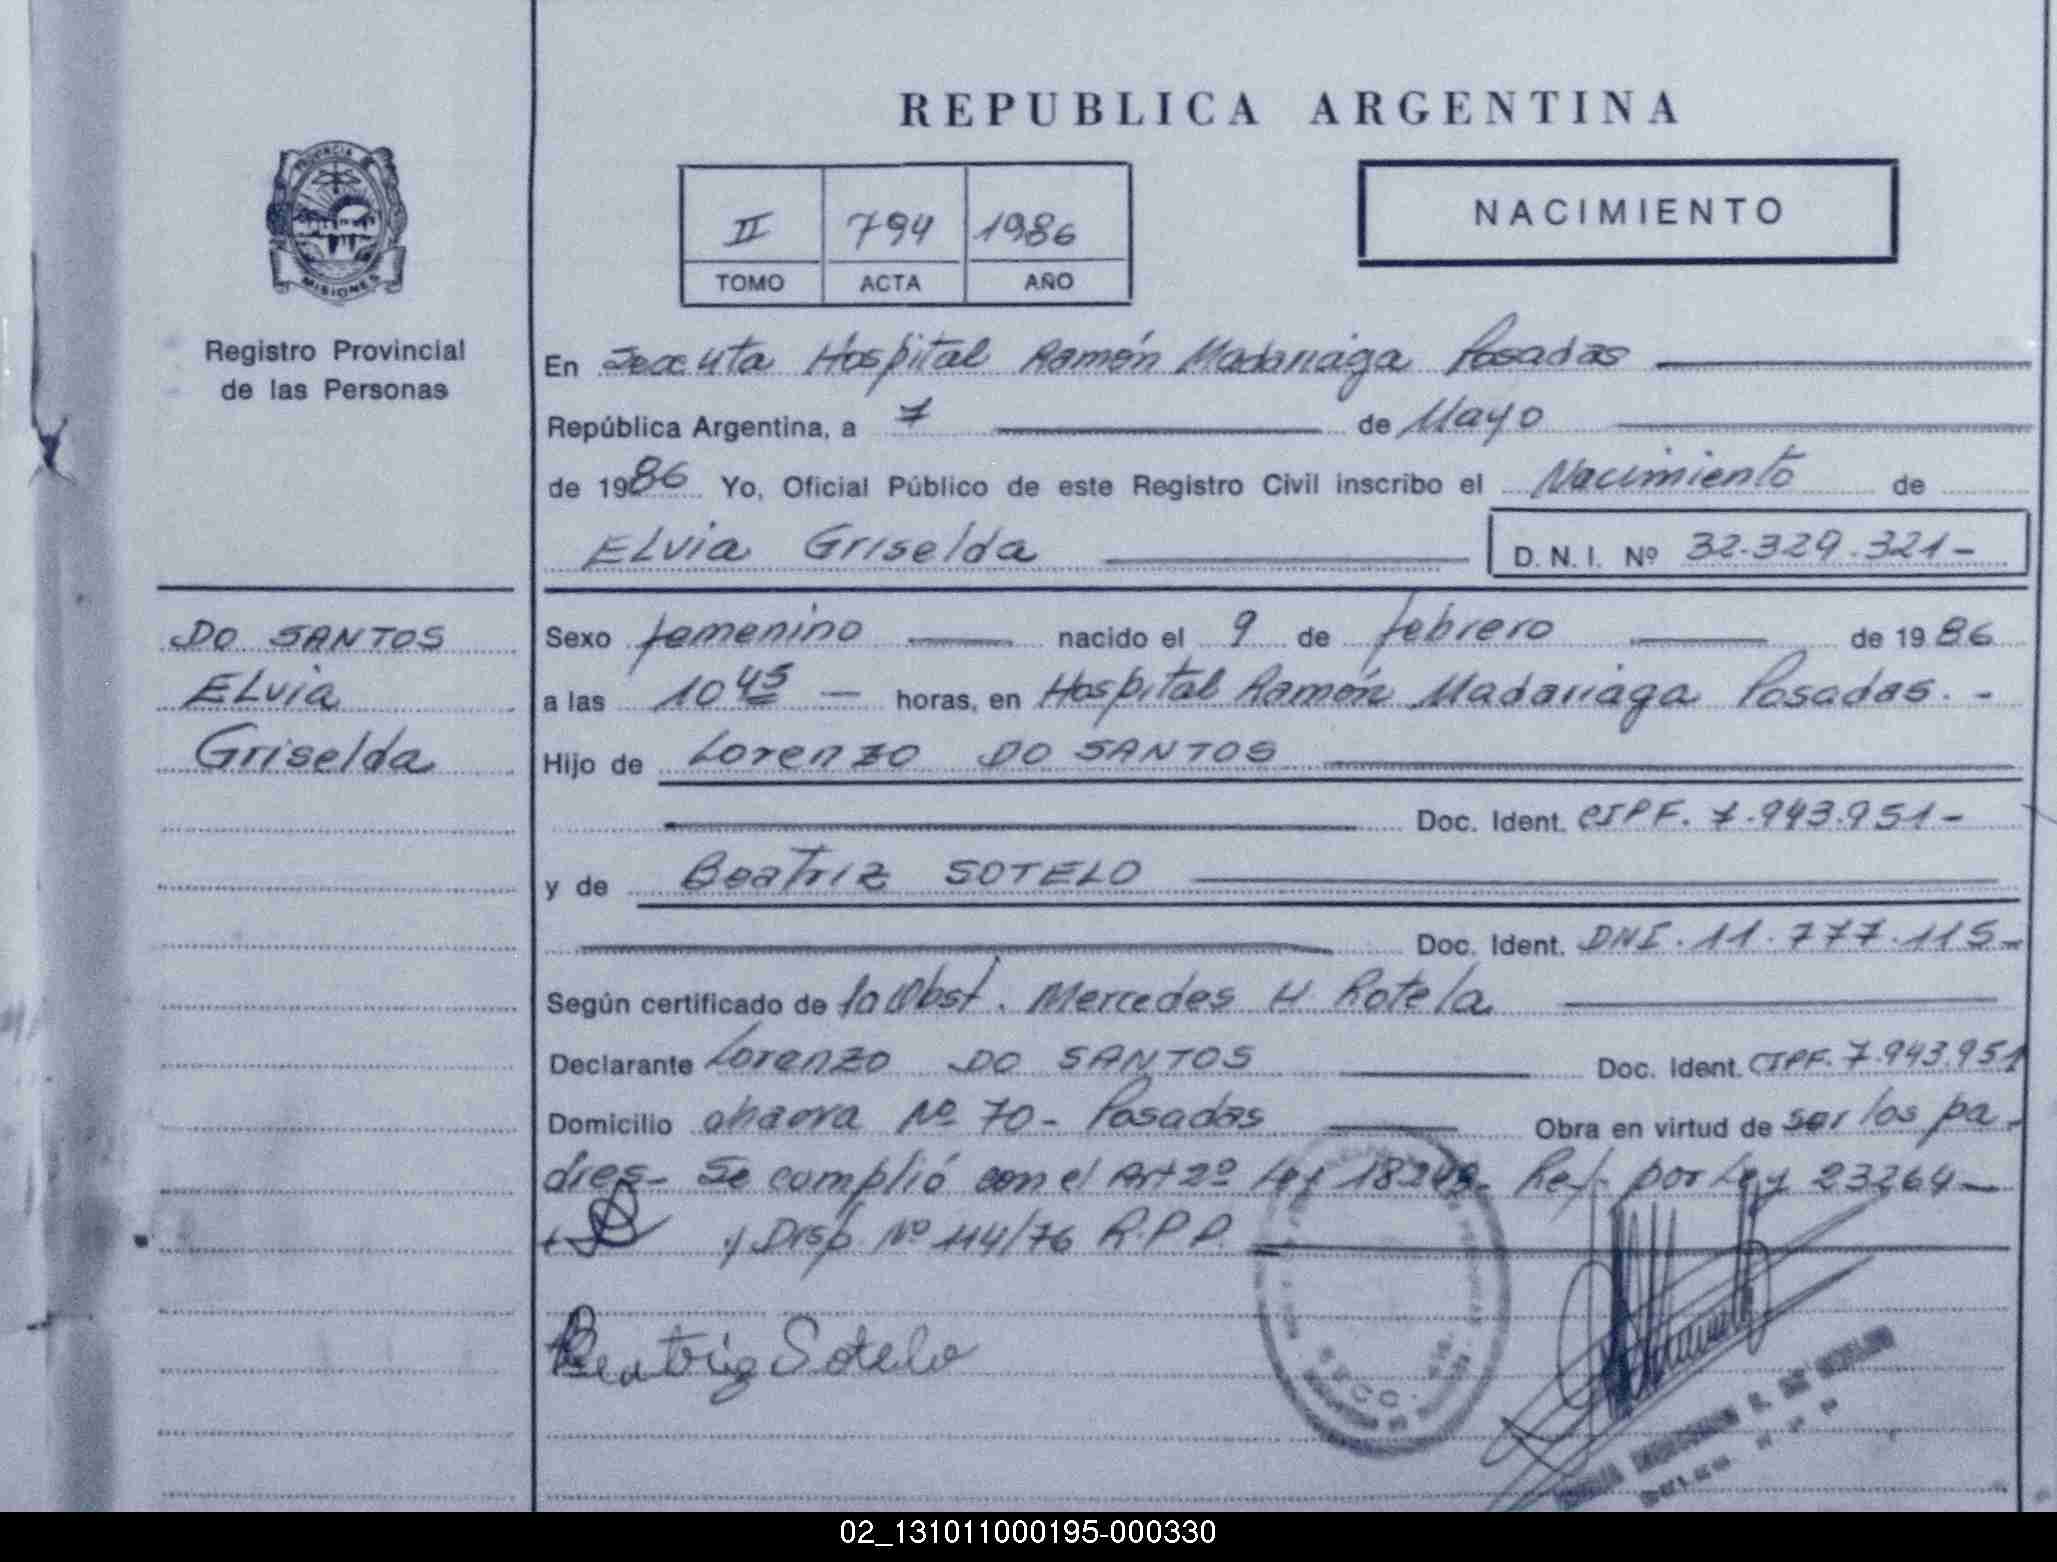 REPUBLICA ARGENTINA
PROVINCIA DE
MISIONES
Registro Provincial
de las Personas
II 794 1986
TOMO ACTA AÑO
NACIMIENTO
En Hospital Ramón Madariaga Posadas
República Argentina, a 7 de Mayo
de 1986 Yo, Oficial Público de este Registro Civil inscribo el Nacimiento de
Elvia Griselda D. N. I. Nº 32.329.321-
DO SANTOS
Elvia
Griselda
Sexo femenino nacido el 9 de febrero de 1986
a las 10 45 horas, en Hospital Ramón Madariaga Posadas.-
Hijo de Lorenzo DO SANTOS
Doc. Ident. CIPF. 7.943.951-
y de Beatriz SOTELO
Doc. Ident. DNI. 11.777.115-
Según certificado de la Obst. Mercedes H Rotela
Declarante Lorenzo DO SANTOS Doc. Ident. CIPF. 7.943.951
Domicilio chacra Nº 70- Posadas Obra en virtud de ser los pa-
dres- Se cumplió con el Art 2º Ley 18248- Ref. por Ley 23264-
y Disp. Nº 114/76 R.P.P.
Beatriz Sotelo
02_131011000195-000330